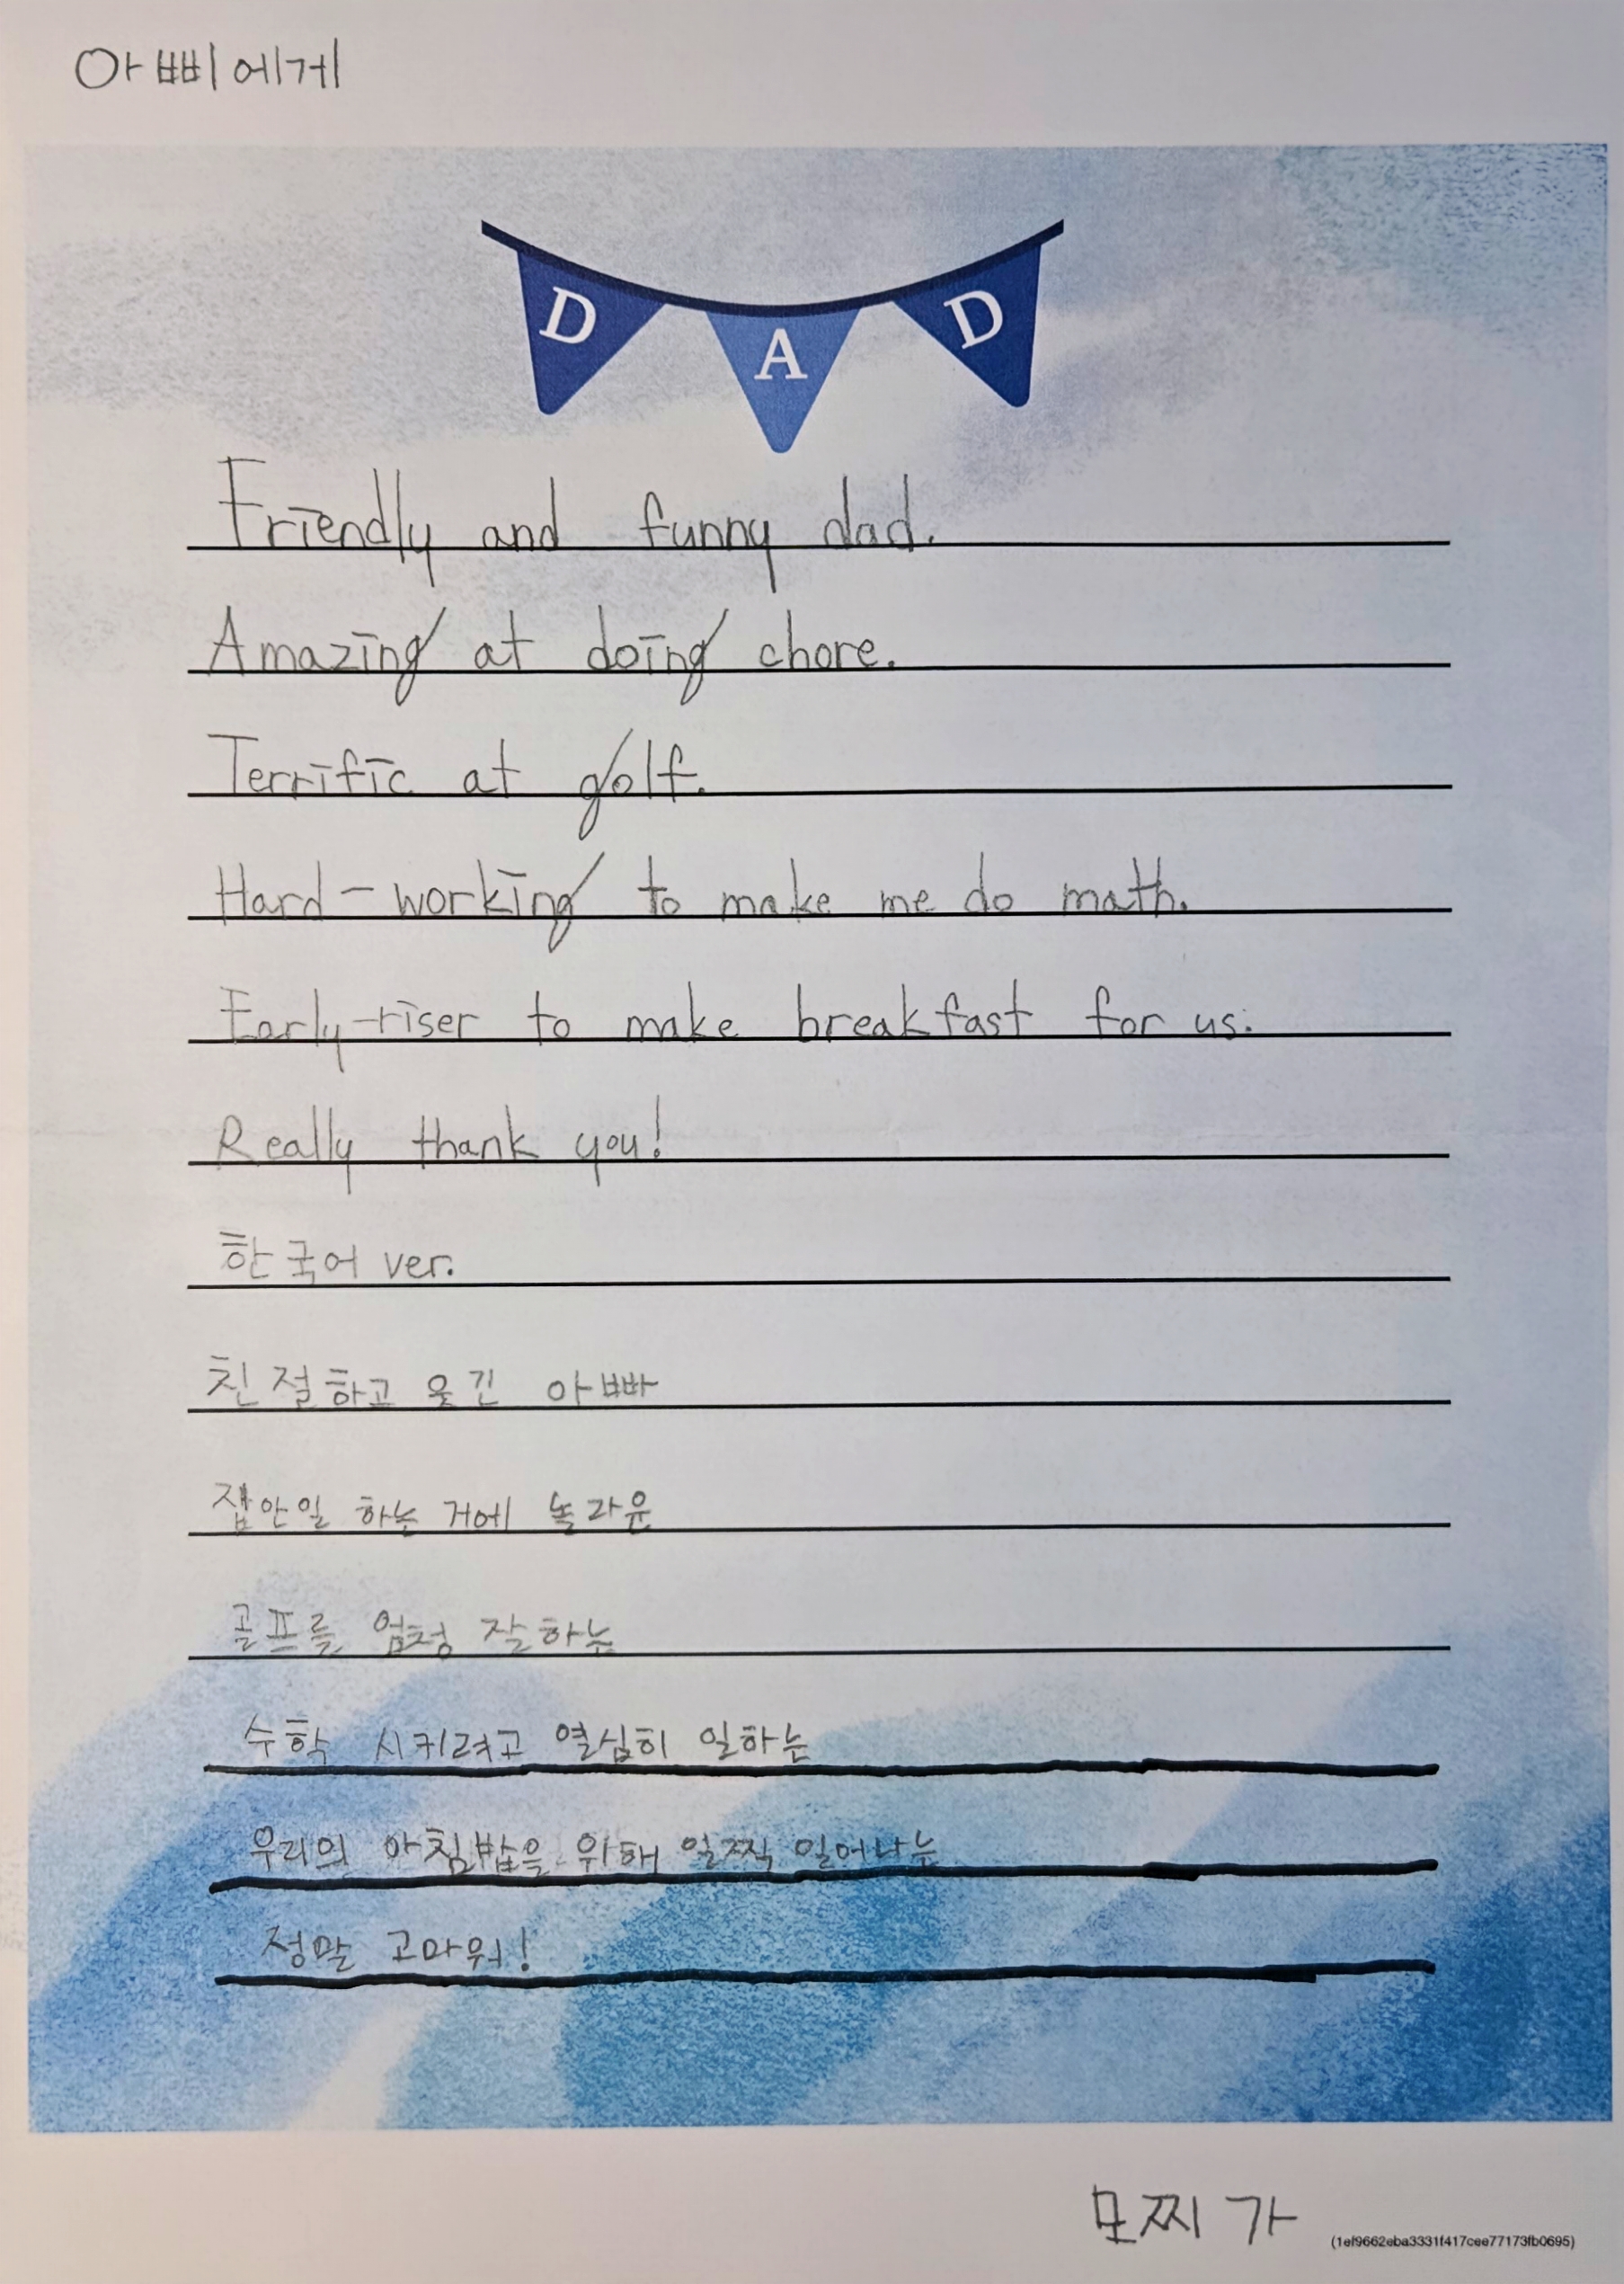 아삐에게
D A D
Friendly and funny dad.
Amazing at doing chore.
Terrific at golf.
Hard-working to make me do math.
Early-riser to make breakfast for us.
Really thank you!
한국어 ver.
친절하고 웃긴 아빠
집안일 하는 거에 놀라운
골프를 엄청 잘하는
수학 시키려고 열심히 일하는
우리의 아침밥을 위해 일찍 일어나는
정말 고마워!
모찌가
(1ef9662eba3331f417cee77173fb0695)